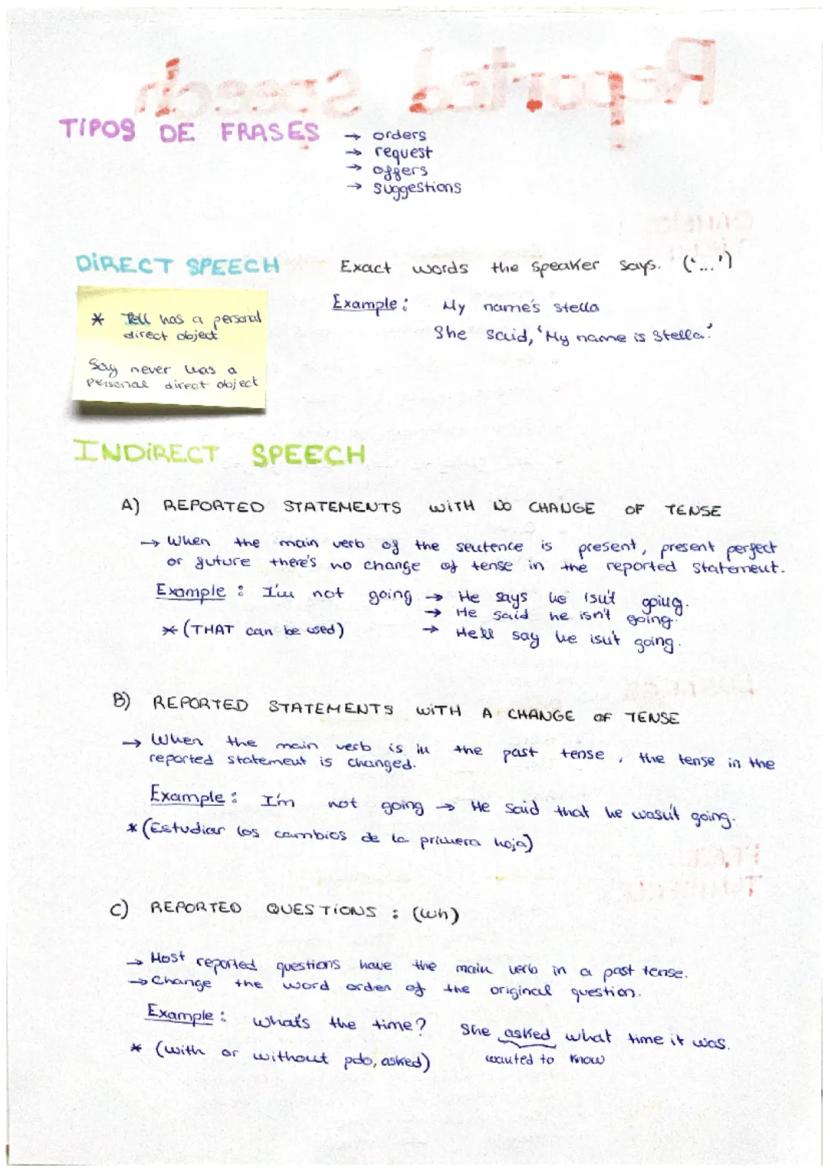 Reported speech
TIPOS DE FRASES
→ orders
→ request
→ offers
→ suggestions
DIRECT SPEECH
Exact words the speaker says. ('...')
Example: My name's stella
She said, 'My name is Stella.'
* Tell has a personal
direct object
Say never has a
personal direct object
INDIRECT SPEECH
A) REPORTED STATEMENTS WITH NO CHANGE OF TENSE
→ When the main verb of the sentence is present, present perfect
or future there's no change of tense in the reported statement.
Example: I'm not going → He says he isn't going.
→ He said he isn't going.
*(THAT can be used) → He'll say he isn't going.
B) REPORTED STATEMENTS WITH A CHANGE OF TENSE
→ When the main verb is in the past tense, the tense in the
reported statement is changed.
Example: I'm not going → He said that he wasn't going.
*(Estudiar los cambios de la primera hoja)
C) REPORTED QUESTIONS: (wh)
→ Most reported questions have the main verb in a past tense.
→ Change the word order of the original question.
Example: What's the time? She asked what time it was.
* (with or without pdo, asked) wanted to know